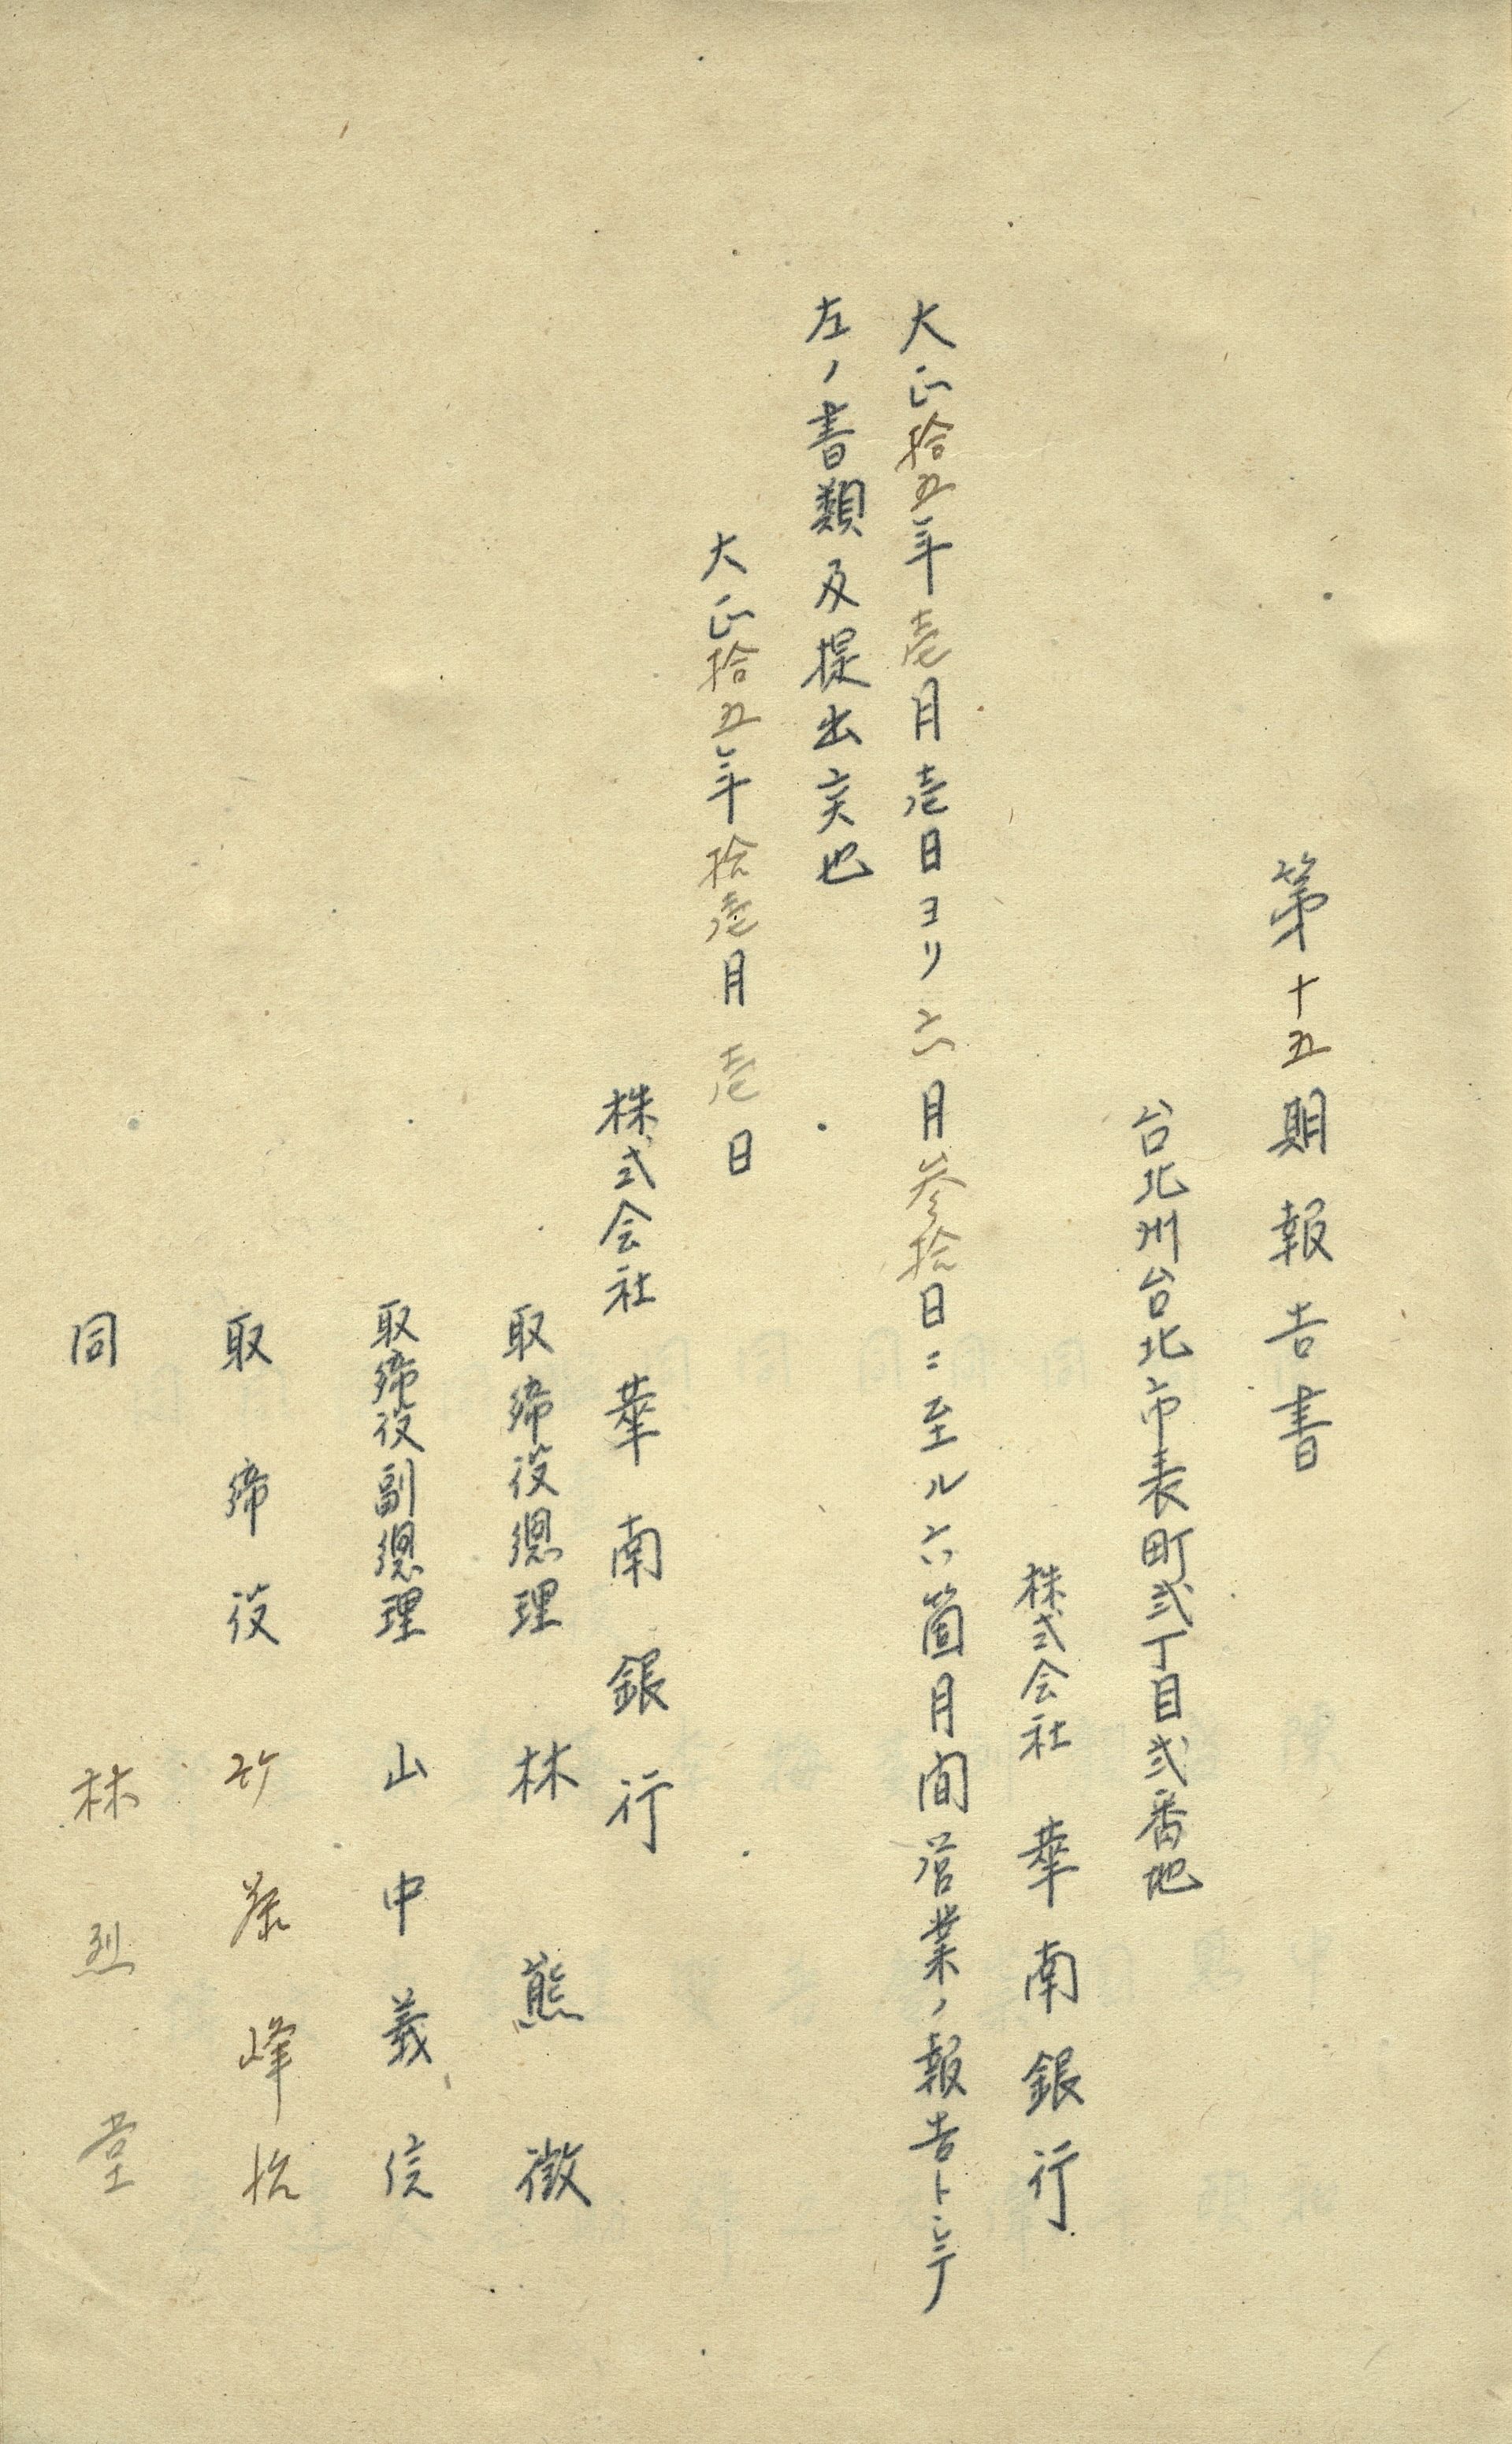 第十五期報告書
台北州台北市表町弐丁目弐番地
株式会社 華南銀行
大正拾五年壱月壱日ヨリ六月参拾日ニ至ル六箇月間営業ノ報告トシテ
左ノ書類及提出候也
大正拾五年拾壱月壱日
株式会社 華南銀行
取締役總理 林熊徴
取締役副總理 山中義信
取締役 竹藤峰治
同 林烈堂